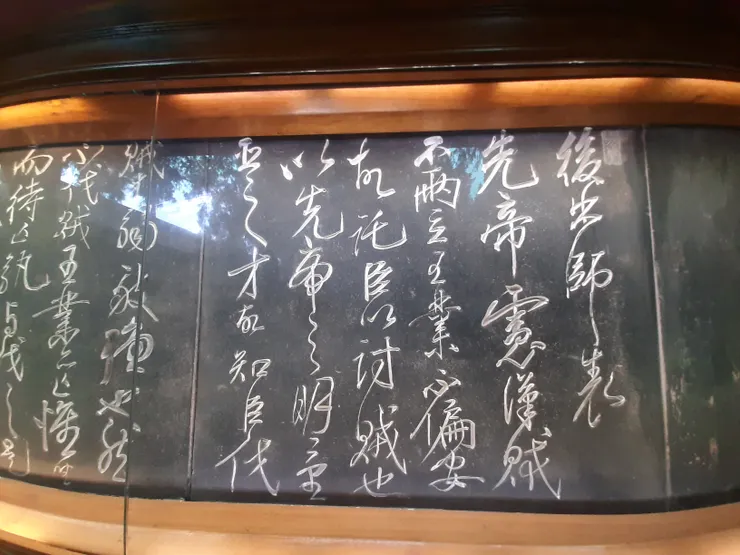 後出師表
先帝慮漢賊
不兩立王業不偏安
故託臣以討賊也
以先帝之明量
臣之才故知臣伐
賊才弱敵彊也然
不伐賊王業亦亡惟坐
而待亡孰與伐之是